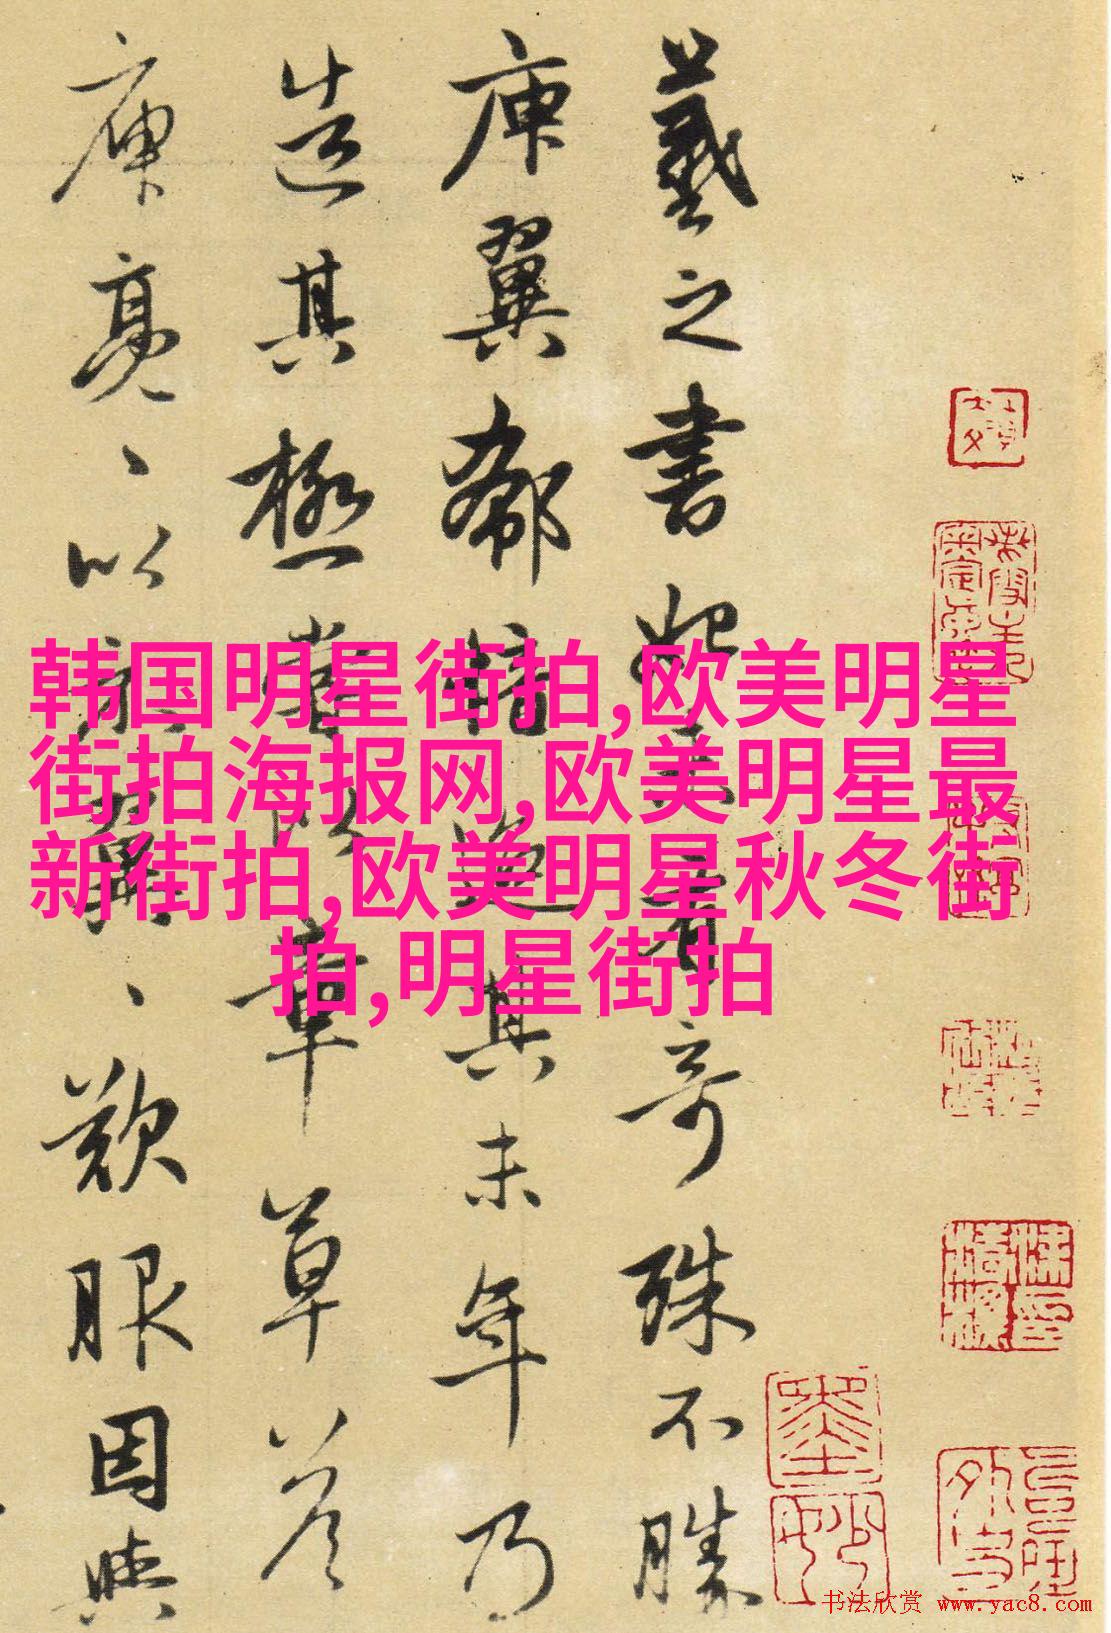 羲之書始未有奇殊不勝
庾翼郗愔迨其末年乃
造其極嘗以章草答
庾亮、以示翼、歎服因與
韩国明星街拍,欧美明星
街拍海报网,欧美明星最
新街拍,欧美明星秋冬街
拍,明星街拍
书法欣赏 www.yac8.com